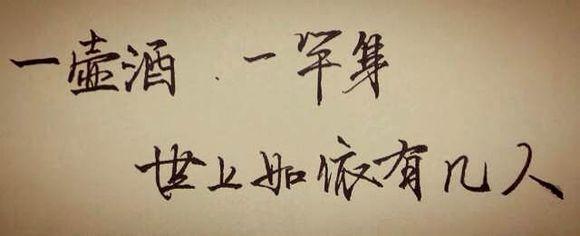 一壶酒、一竿身
世上如侬有几人